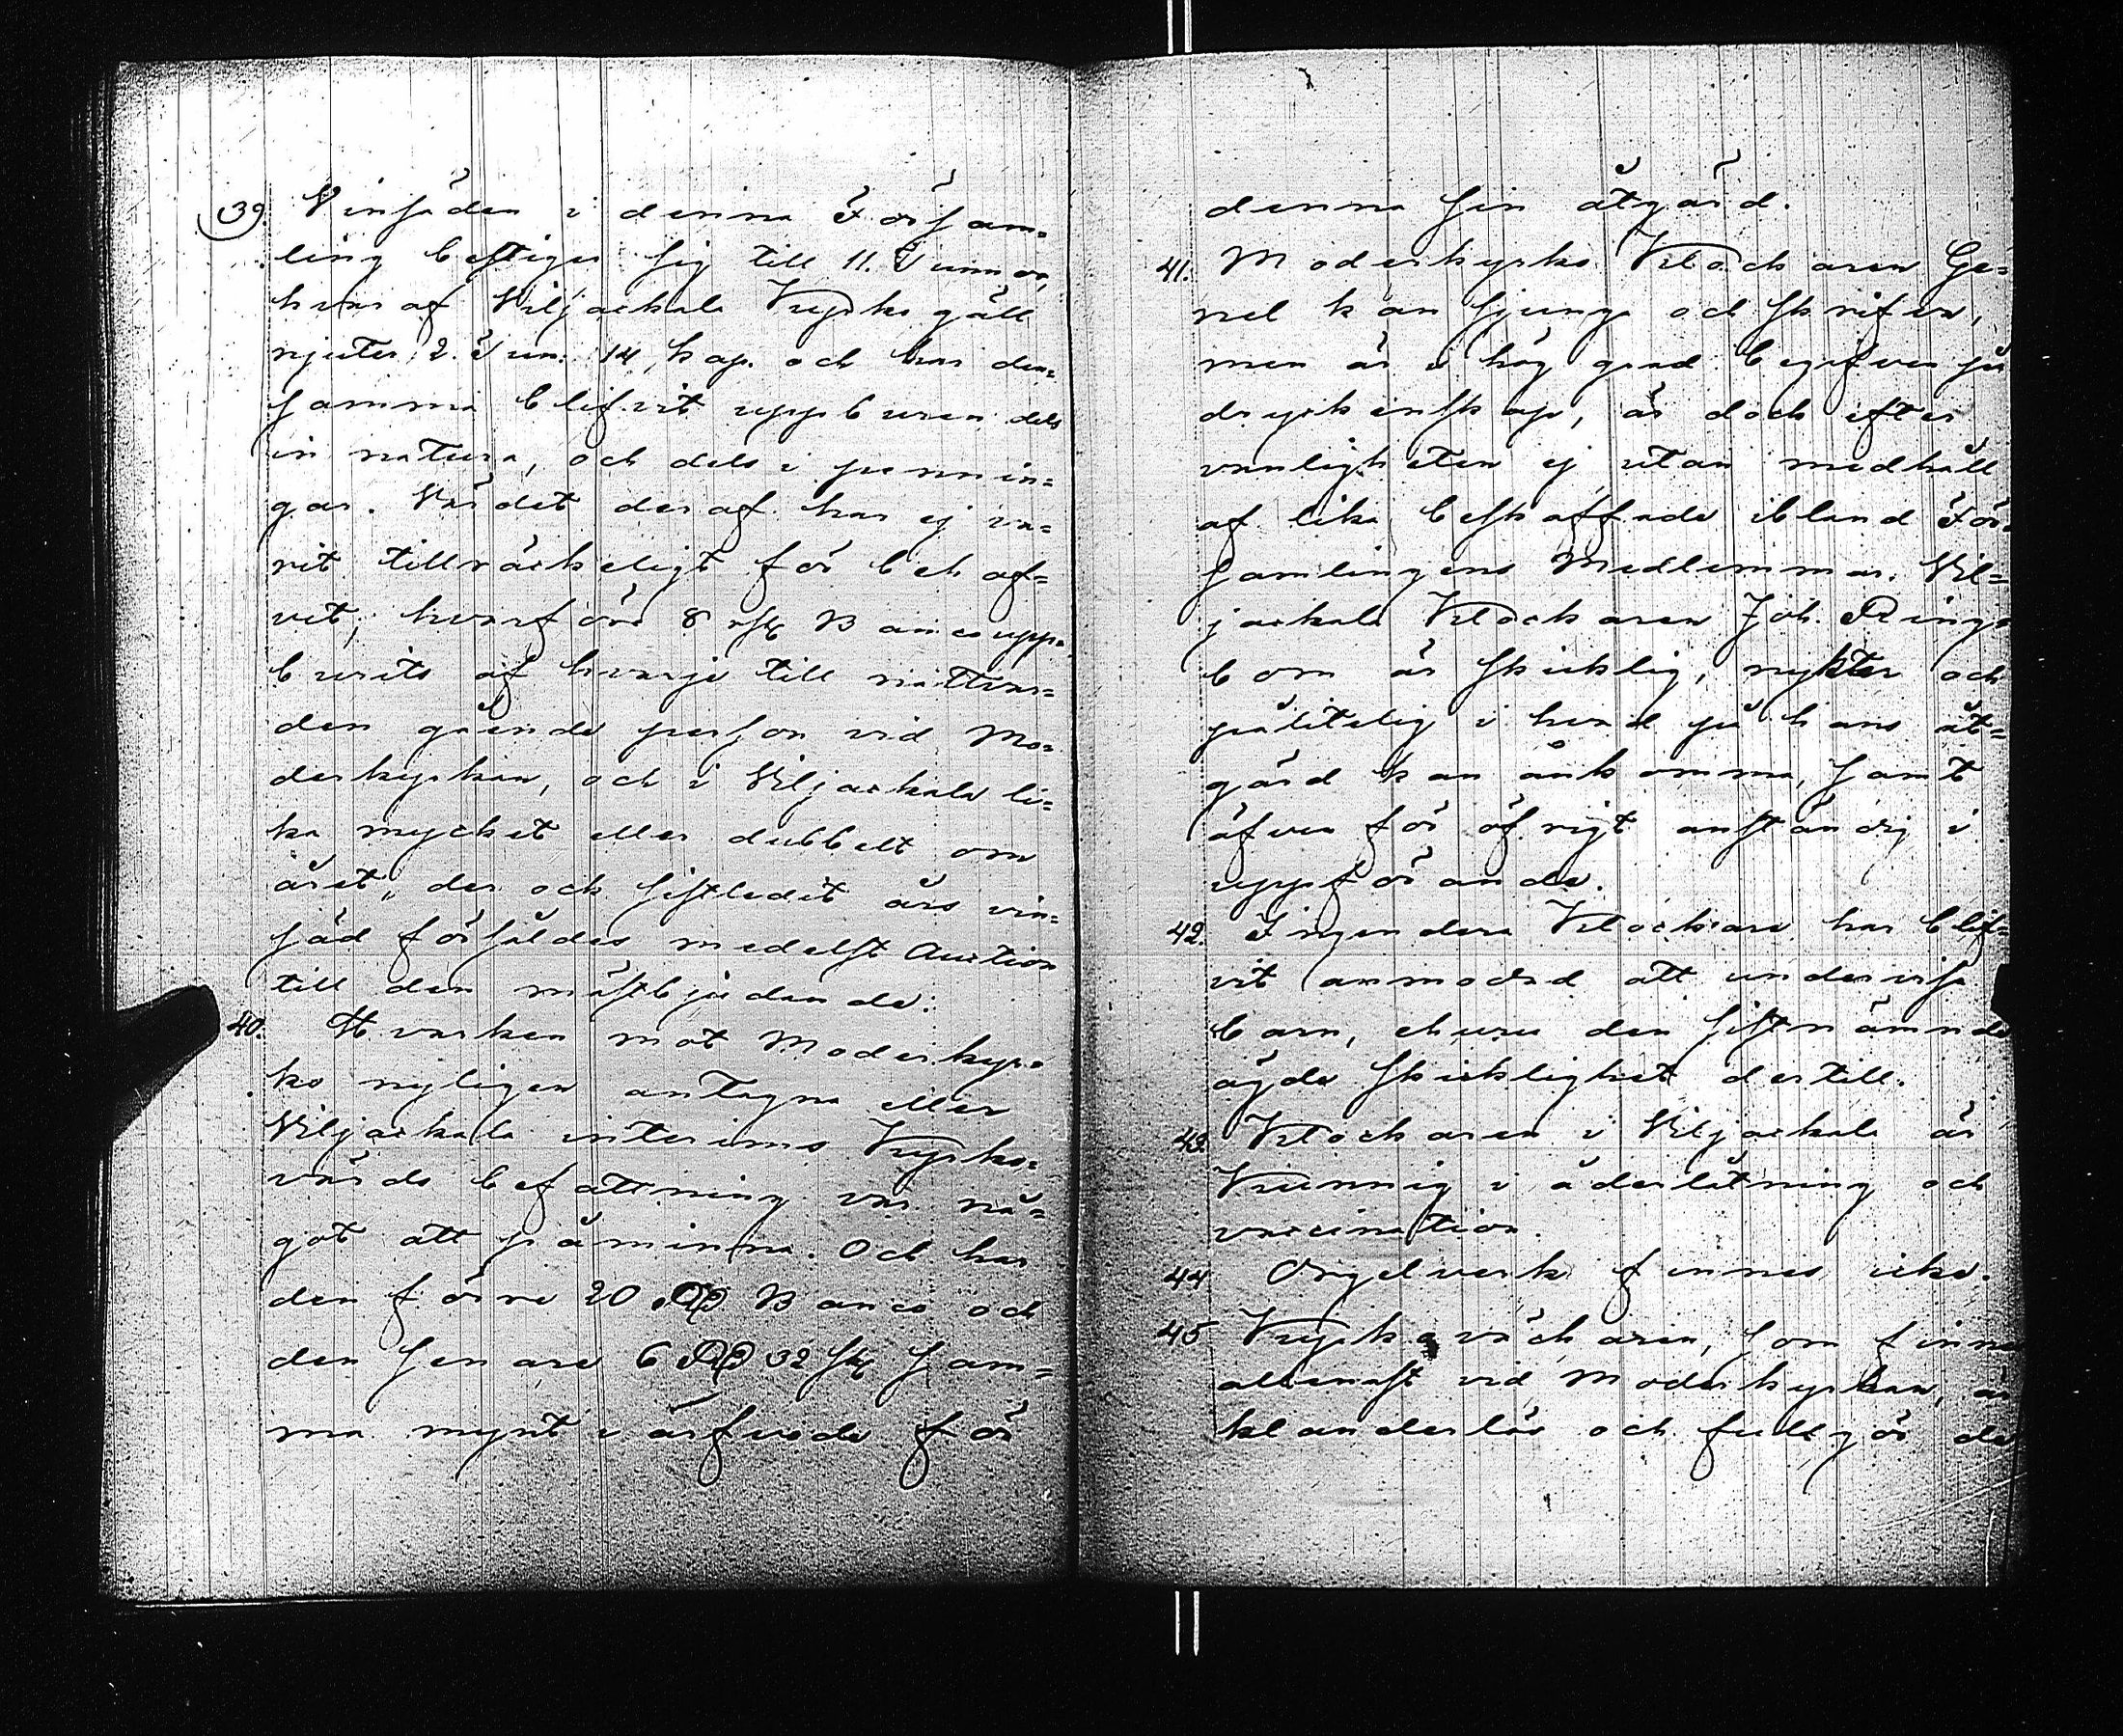 39. Vinsäden i denna Försam=
ling bestiger sig till 11. Tunnor,
hvaraf Viljackala Kyrko gäll
njuter 2. Tun. 14 kap. och har den=
samma blifvit uppburen dels
in natura, och dels i pennin=
gar. Värdet deraf har ej va=
rit tillräckeligt för behof=
vet; hvarföre 8 rst Banco upp=
burits af hvarje till nattvar=
den gående person vid Mo=
derkyrkan, och i Viljackala li=
ka mycket eller dubbelt om
året, der och sistledit års vin=
säd försåldes medelst Auction
till den mästbjudande.
40. Hvarken mot Moderkyr=
ko nyligen antagna eller
Viljackala interims Kyrko=
värds befattning var nå=
got att påminna. Och har
den förre 20 Rd Banco och
den senare 6 Rd 32 sk sam=
ma mynt i arfvode för
denna sin åtgärd.
41. Moderkyrko Klockaren Ge=
nel kan sjunga och skrifva,
men är i hög grad begifven på
dryckenskap, är dock efter
vanligheten ej utan medhåll
af lika beskaffade ibland För=
samlingens Medlemmar. Vil=
jackala Klockaren Joh. Ring=
bom är skicklig, nykter och
pålitelig i hvad på hans åt=
gärd kan ankomma, samt
äfven för öfrigt anständig i
uppförande.
42. Ingendera Klockare har blif=
vit anmodad att undervisa
barn, ehuru den sistnämnde
ägde skicklighet dertill.
43. Klockaren i Viljackala är
Kunnig i åderlåtning och
vaccination.
44 Orgelverk finnes icke.
45 Kyrkoväckaren, som finnes
allenast vid Moderkyrkan, är
klanderlös och fullgör de